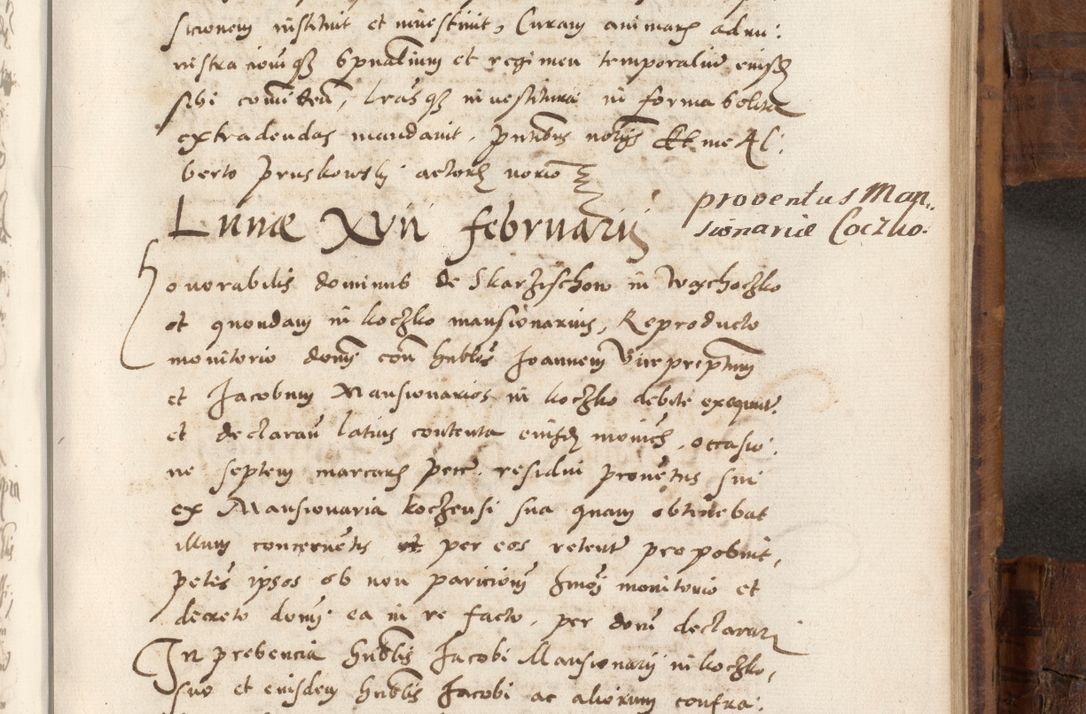 sicionem instituit et investivit, Curam animarum admi:
nistracionemque spiritualium et regimen temporalium eiusdem
sibi comittendam, lrasque investiture in forma solita
extradendas mandavit. Pntibus notariis et me Al:
berto Pruskowskj actorum notario
Lunæ XVII februarij
proventus Man:
sionariæ Coczko.
Honorabilis dominus de Skarzischow in Wochoczko
et quondam in koczko mansionarius, Reproducto
monitorio domini contra honorabiles Joannem Vicepreptum
et Jacobum Mansionarios in koczko debite exequut.
et declaravit latius contenta eiusdem monitorii, occasio:
ne septem marcarum pecc. residui proventus sui
ex Mansionaria koczensi sua quam obtinebat
illum concernentis et per eos retenti proposuit,
petens ipsos ob non paricionem monitorio et
decreto domini ea in re facto, per dominum declarari
In presencia honorabilis Jacobi Mansionarij in koczko,
suo et eiusdem honorabilis Jacobi ac aliorum confra: